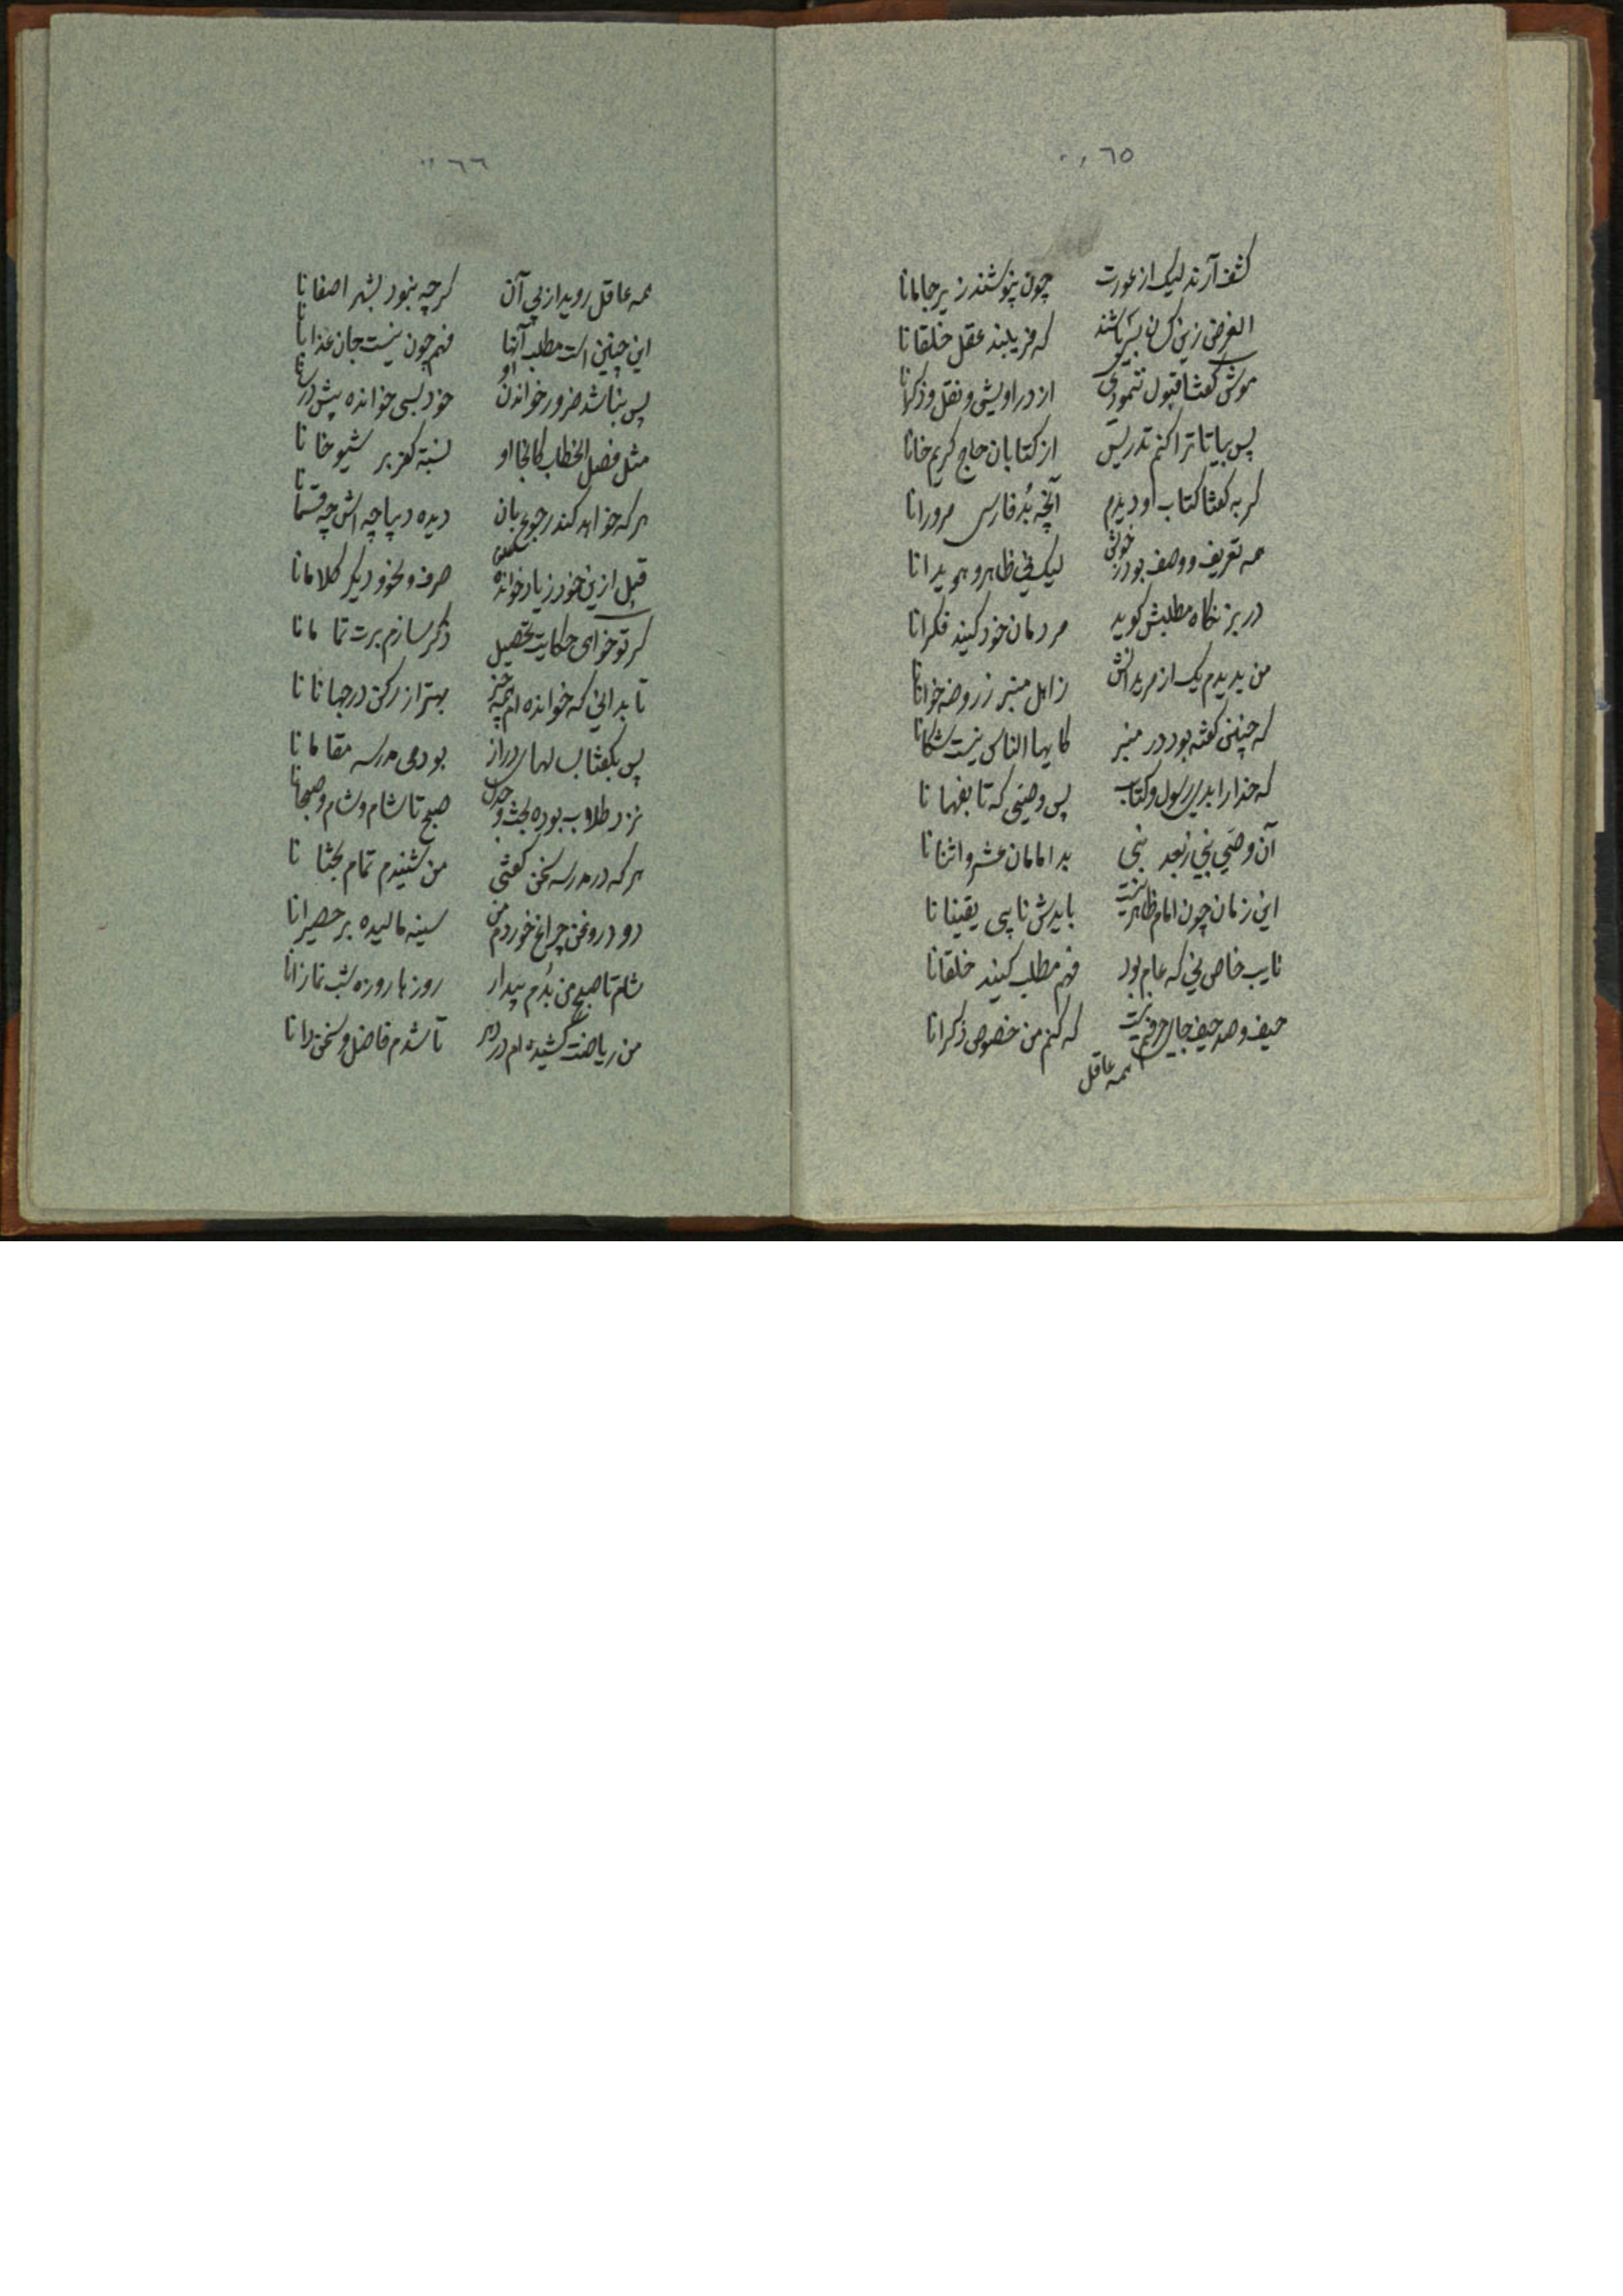 ٦٥
کشف آرند لیک از عورت چون نپوشند زیر جامانا
الغرض زین کسان بسی باشند که فریبند عقل خلقانا
موش گفتا قبول ننمودی از دراویش و نقل و ذکرانا
پس بیا تا ترا کنم تدریس از کتابان حاج کریم خانا
گربه گفتا کتاب او دیدم آنچه بُد فارسی مرورانا
همه تعریف و وصف بود ز خویش لیک فی ظاهر و هویدانا
در بزنگاه مطلبش گوید مردمان خود کنید فکرانا
من بدیدم یک از مریدانش ز اهل منبر ز روضه خوانانا
که چنین گفته بود در منبر کایها الناس نیست شکانا
که خدا را بدی رسول و کتاب پس وصیی که تا بفهمانا
آن وصیی نبی ز بعد نبی بد امامان عشر و اثنانا
این زمان چون امام ظاهر نیست بایدش نایبی یقینانا
نایب خاص نی که عام بود فهم مطلب کنید خلقانا
حیف و صد حیف جای حرفم نیست که کنم من خصوص ذکرانا
همه عاقل
٦٦
همه عاقل روید از پی آن گرچه نبود بشهر اصفانا
این چنین است مطلب آنها فهم چون نیست جان عذابانا
پس نباشد ضرور خواندن او خود بسی خوانده پیش درسانا
مثل فصل الخطاب کانجا او نسبة کفر بر شیوخانا
هر که خواهد کند رجوع بان دیده دیباچه اش چه قسمانا
قبل ازین خود زیاد خوانده صرف و نحو و دیگر کلامانا
گر تو خواهی حکایت تحصیل ذکر سازم برت تمامانا
تا بدانی که خوانده ام همه چیز بهتر از رکن در جهانانا
پس بگفتا بسالهای دراز بودمی مدرسه مقامانا
نزد طلاب بوده بحث و جدل صبح تا شام و شام و صبحانا
هر که در مدرسه سخن گفتی من شنیدم تمام بحثانا
دود روغن چراغ خوردم من سینه مالیده بر حصیرانا
شام تا صبح من بُدم بیدار روزها روزه شب نمازانا
من ریاضت کشیده ام در دهر تا شدم فاضل و سخن دانا